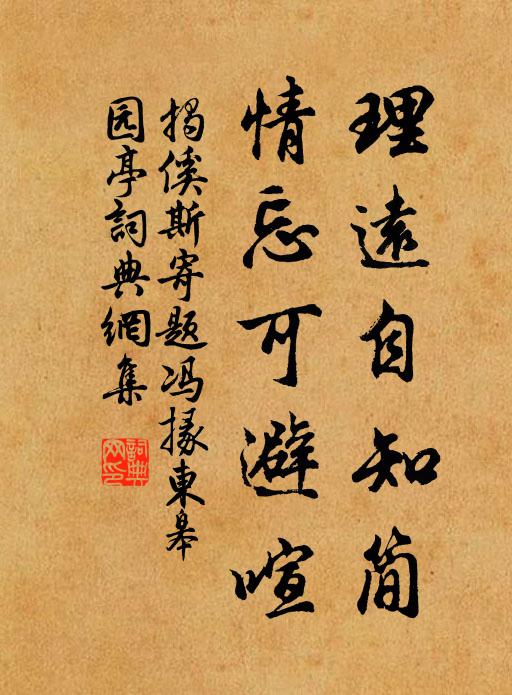 理遠自知简
情忘可避喧
揭傒斯寄题冯掾東皋
园亭詞典網集
詞典网印